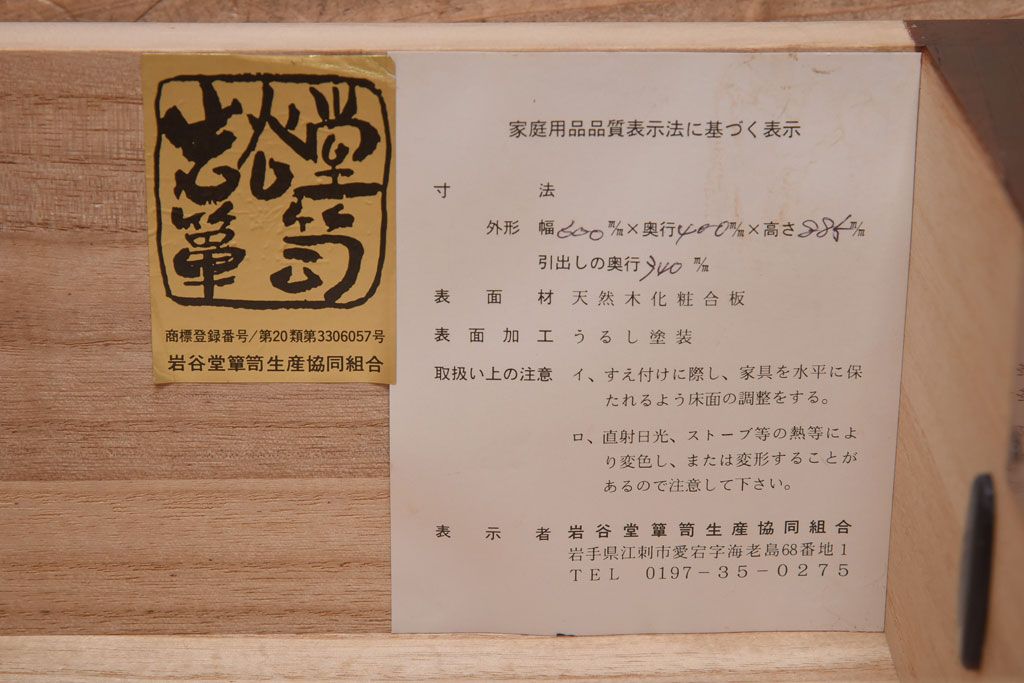 岩谷堂箪笥
商標登録番号/第20類第3306057号
岩谷堂簞笥生産協同組合
家庭用品品質表示法に基づく表示
寸法
外形 幅600m/m×奥行400m/m×高さ885m/m
引出しの奥行340m/m
表面材 天然木化粧合板
表面加工 うるし塗装
取扱い上の注意 イ、すえ付けに際し、家具を水平に保
たれるよう床面の調整をする。
ロ、直射日光、ストーブ等の熱等によ
り変色し、または変形することが
あるので注意して下さい。
表示者 岩谷堂簞笥生産協同組合
岩手県江刺市愛宕字海老島68番地1
TEL 0197-35-0275